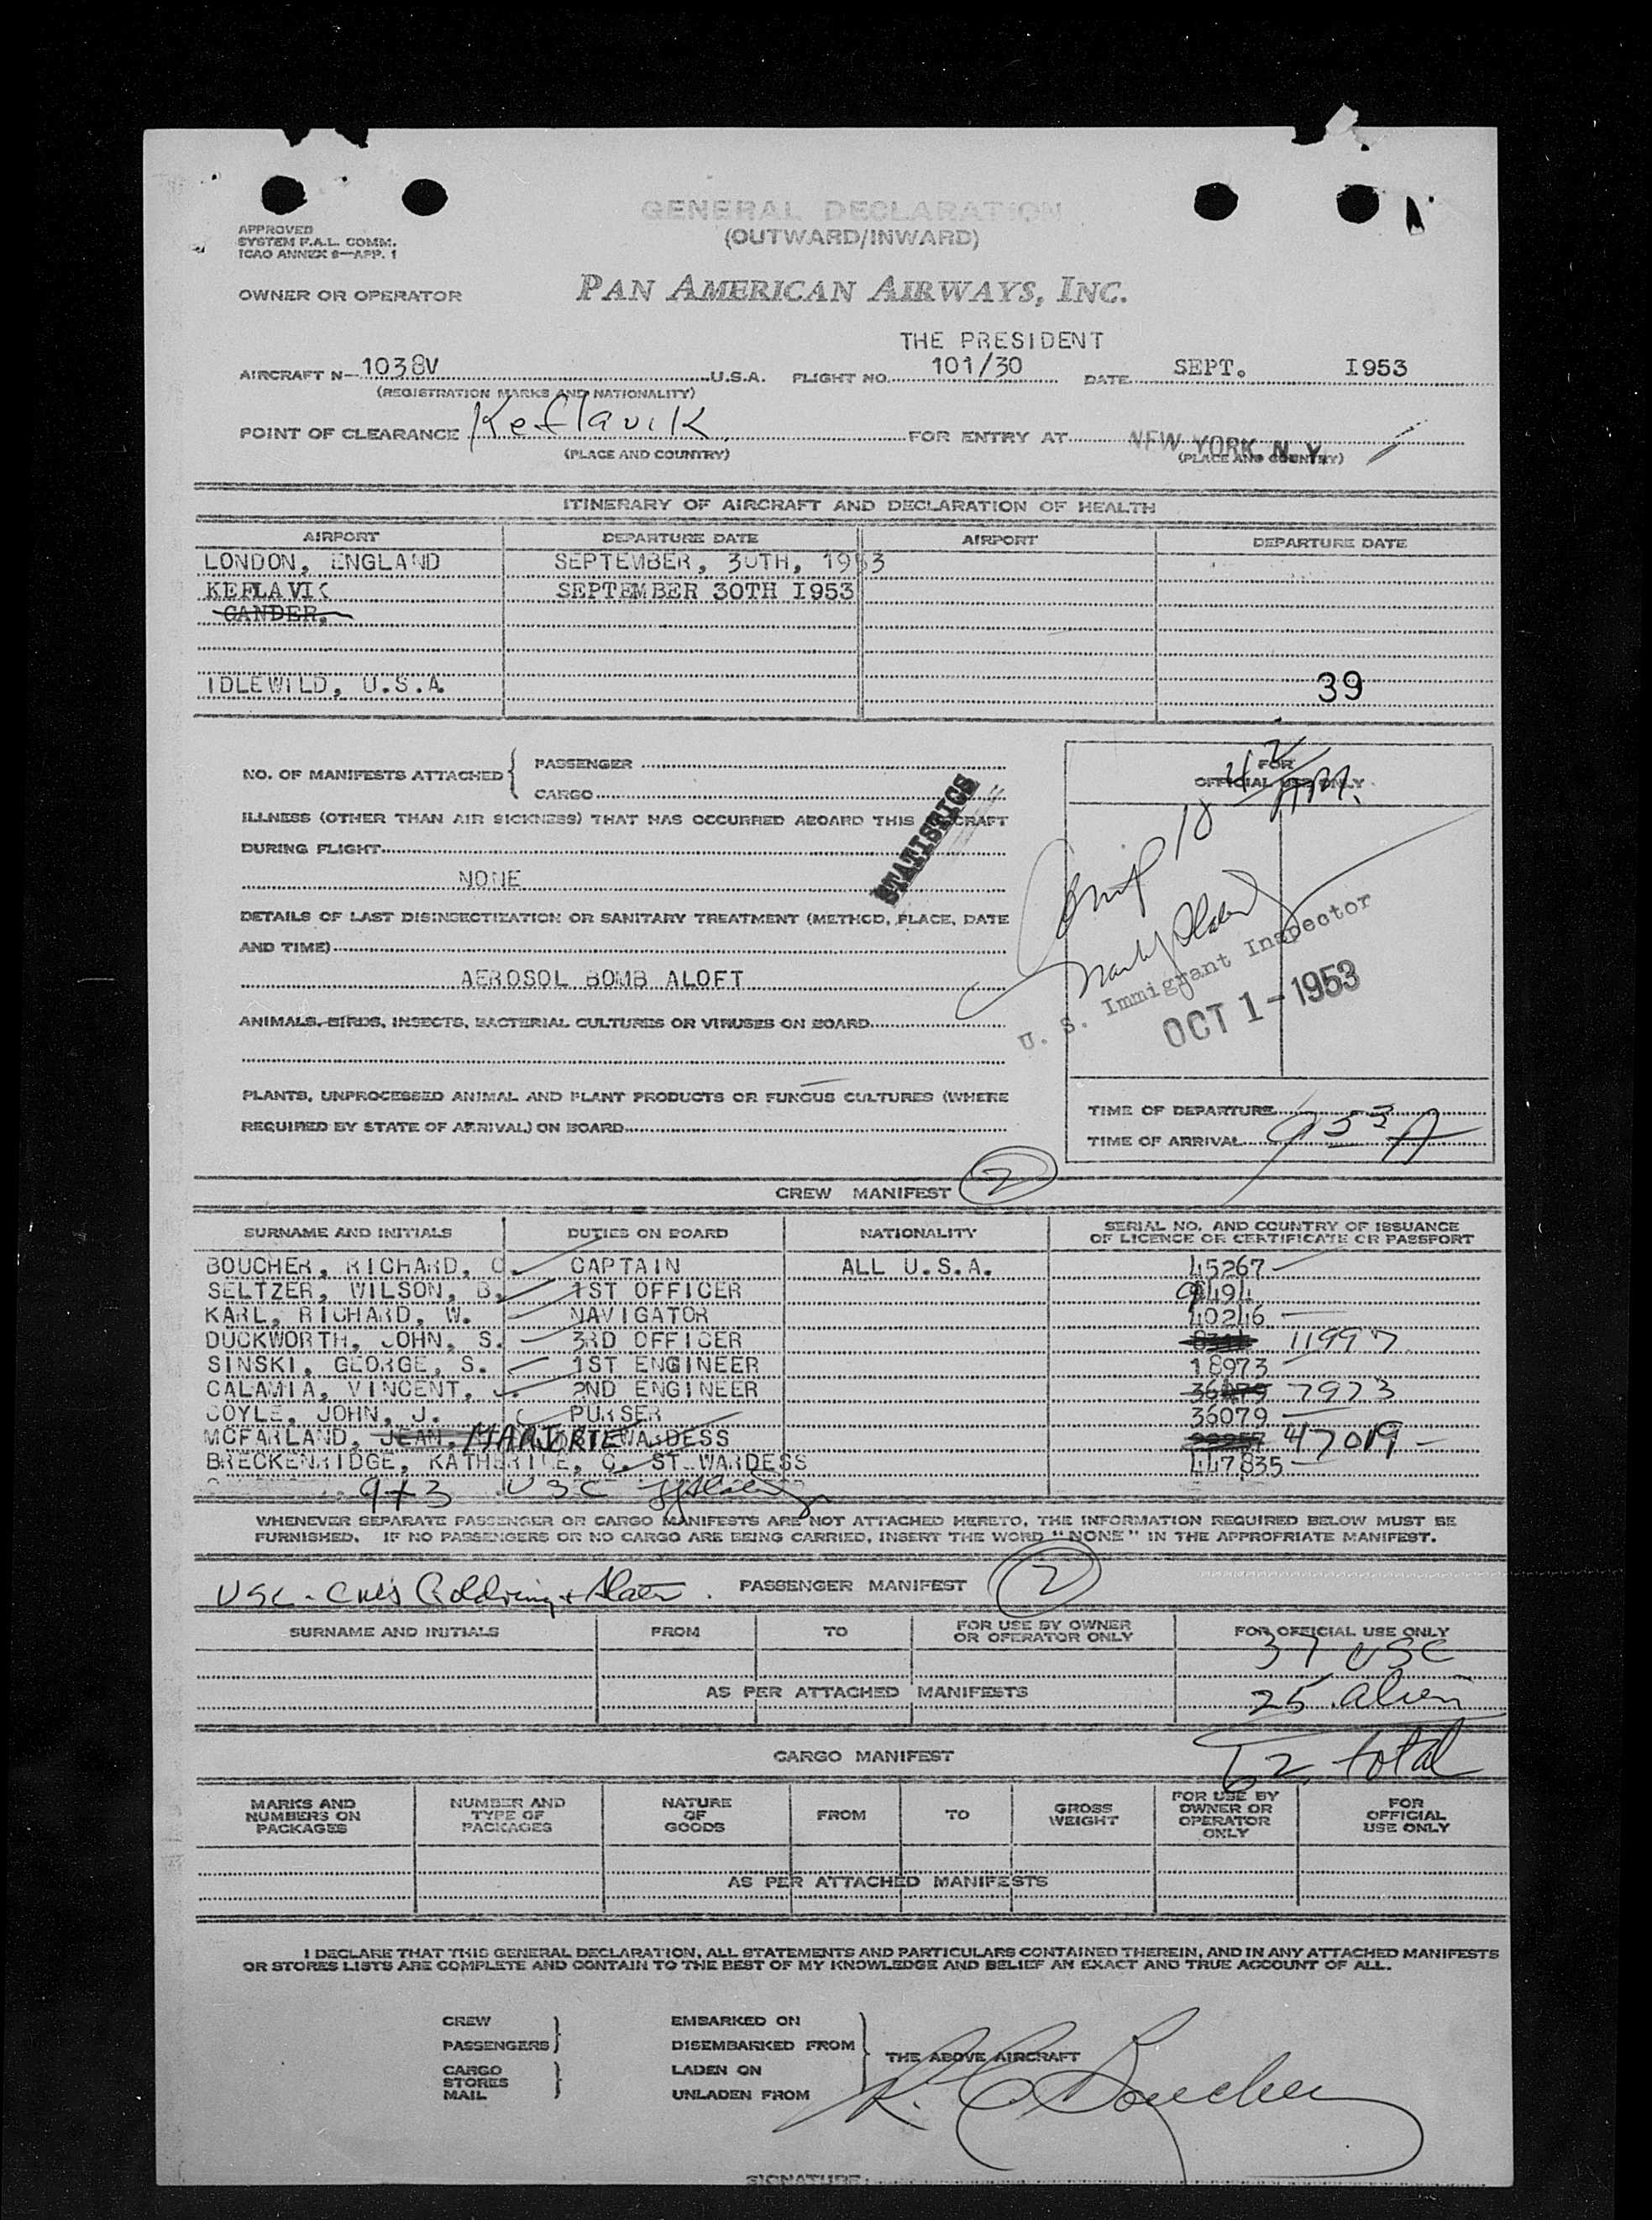 GENERAL DECLARATION
(OUTWARD/INWARD)
APPROVED
SYSTEM F.A.L. COMM.
ICAO ANNEX 9—APP. 1
OWNER OR OPERATOR PAN AMERICAN AIRWAYS, INC.
THE PRESIDENT
AIRCRAFT N- 1038V U.S.A. FLIGHT NO. 101/30 DATE SEPT. 1953
(REGISTRATION MARKS AND NATIONALITY)
POINT OF CLEARANCE Keflavik FOR ENTRY AT NEW YORK, N. Y.
(PLACE AND COUNTRY) (PLACE AND COUNTRY)
ITINERARY OF AIRCRAFT AND DECLARATION OF HEALTH
AIRPORT DEPARTURE DATE AIRPORT DEPARTURE DATE
LONDON, ENGLAND SEPTEMBER, 30TH, 1953
KEFLAVIK SEPTEMBER 30TH 1953
GANDER,
IDLEWILD, U.S.A. 39
NO. OF MANIFESTS ATTACHED { PASSENGER
CARGO
FOR
OFFICIAL USE ONLY
ILLNESS (OTHER THAN AIR SICKNESS) THAT HAS OCCURRED ABOARD THIS AIRCRAFT
DURING FLIGHT
STATISTICS
NONE
DETAILS OF LAST DISINSECTIZATION OR SANITARY TREATMENT (METHOD, PLACE, DATE
AND TIME)
AEROSOL BOMB ALOFT
U. S. Immigrant Inspector
OCT 1 - 1953
ANIMALS, BIRDS, INSECTS, BACTERIAL CULTURES OR VIRUSES ON BOARD
PLANTS, UNPROCESSED ANIMAL AND PLANT PRODUCTS OR FUNGUS CULTURES (WHERE
REQUIRED BY STATE OF ARRIVAL) ON BOARD
TIME OF DEPARTURE
TIME OF ARRIVAL 953A
CREW MANIFEST 2
SURNAME AND INITIALS DUTIES ON BOARD NATIONALITY SERIAL NO. AND COUNTRY OF ISSUANCE
OF LICENCE OR CERTIFICATE OR PASSPORT
BOUCHER, RICHARD, C. CAPTAIN ALL U.S.A. 45267
SELTZER, WILSON, B. 1ST OFFICER 9494
KARL, RICHARD, W. NAVIGATOR 40246
DUCKWORTH, JOHN, S. 3RD OFFICER 11997
SINSKI, GEORGE, S. 1ST ENGINEER 18973
CALAMIA, VINCENT, J. 2ND ENGINEER 36079 7973
COYLE, JOHN, J. PURSER 36079
MCFARLAND, JEAN, MARJORIE STEWARDESS 47019
BRECKENRIDGE, KATHERINE, C. STEWARDESS 447835
9+3 USC
WHENEVER SEPARATE PASSENGER OR CARGO MANIFESTS ARE NOT ATTACHED HERETO, THE INFORMATION REQUIRED BELOW MUST BE
FURNISHED. IF NO PASSENGERS OR NO CARGO ARE BEING CARRIED, INSERT THE WORD "NONE" IN THE APPROPRIATE MANIFEST.
USC - PASSENGER MANIFEST 2
SURNAME AND INITIALS FROM TO FOR USE BY OWNER
OR OPERATOR ONLY FOR OFFICIAL USE ONLY
37 USC
AS PER ATTACHED MANIFESTS 25 alien
62 total
CARGO MANIFEST
MARKS AND
NUMBERS ON
PACKAGES NUMBER AND
TYPE OF
PACKAGES NATURE
OF
GOODS FROM TO GROSS
WEIGHT FOR USE BY
OWNER OR
OPERATOR
ONLY FOR
OFFICIAL
USE ONLY
AS PER ATTACHED MANIFESTS
I DECLARE THAT THIS GENERAL DECLARATION, ALL STATEMENTS AND PARTICULARS CONTAINED THEREIN, AND IN ANY ATTACHED MANIFESTS
OR STORES LISTS ARE COMPLETE AND CONTAIN TO THE BEST OF MY KNOWLEDGE AND BELIEF AN EXACT AND TRUE ACCOUNT OF ALL.
CREW EMBARKED ON
PASSENGERS DISEMBARKED FROM
THE ABOVE AIRCRAFT
CARGO LADEN ON
STORES
MAIL UNLADEN FROM
R. C. Boucher
SIGNATURE